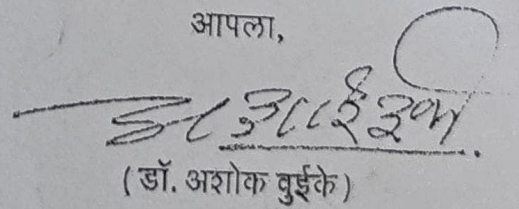 आपला,
(डॉ. अशोक वुईके)